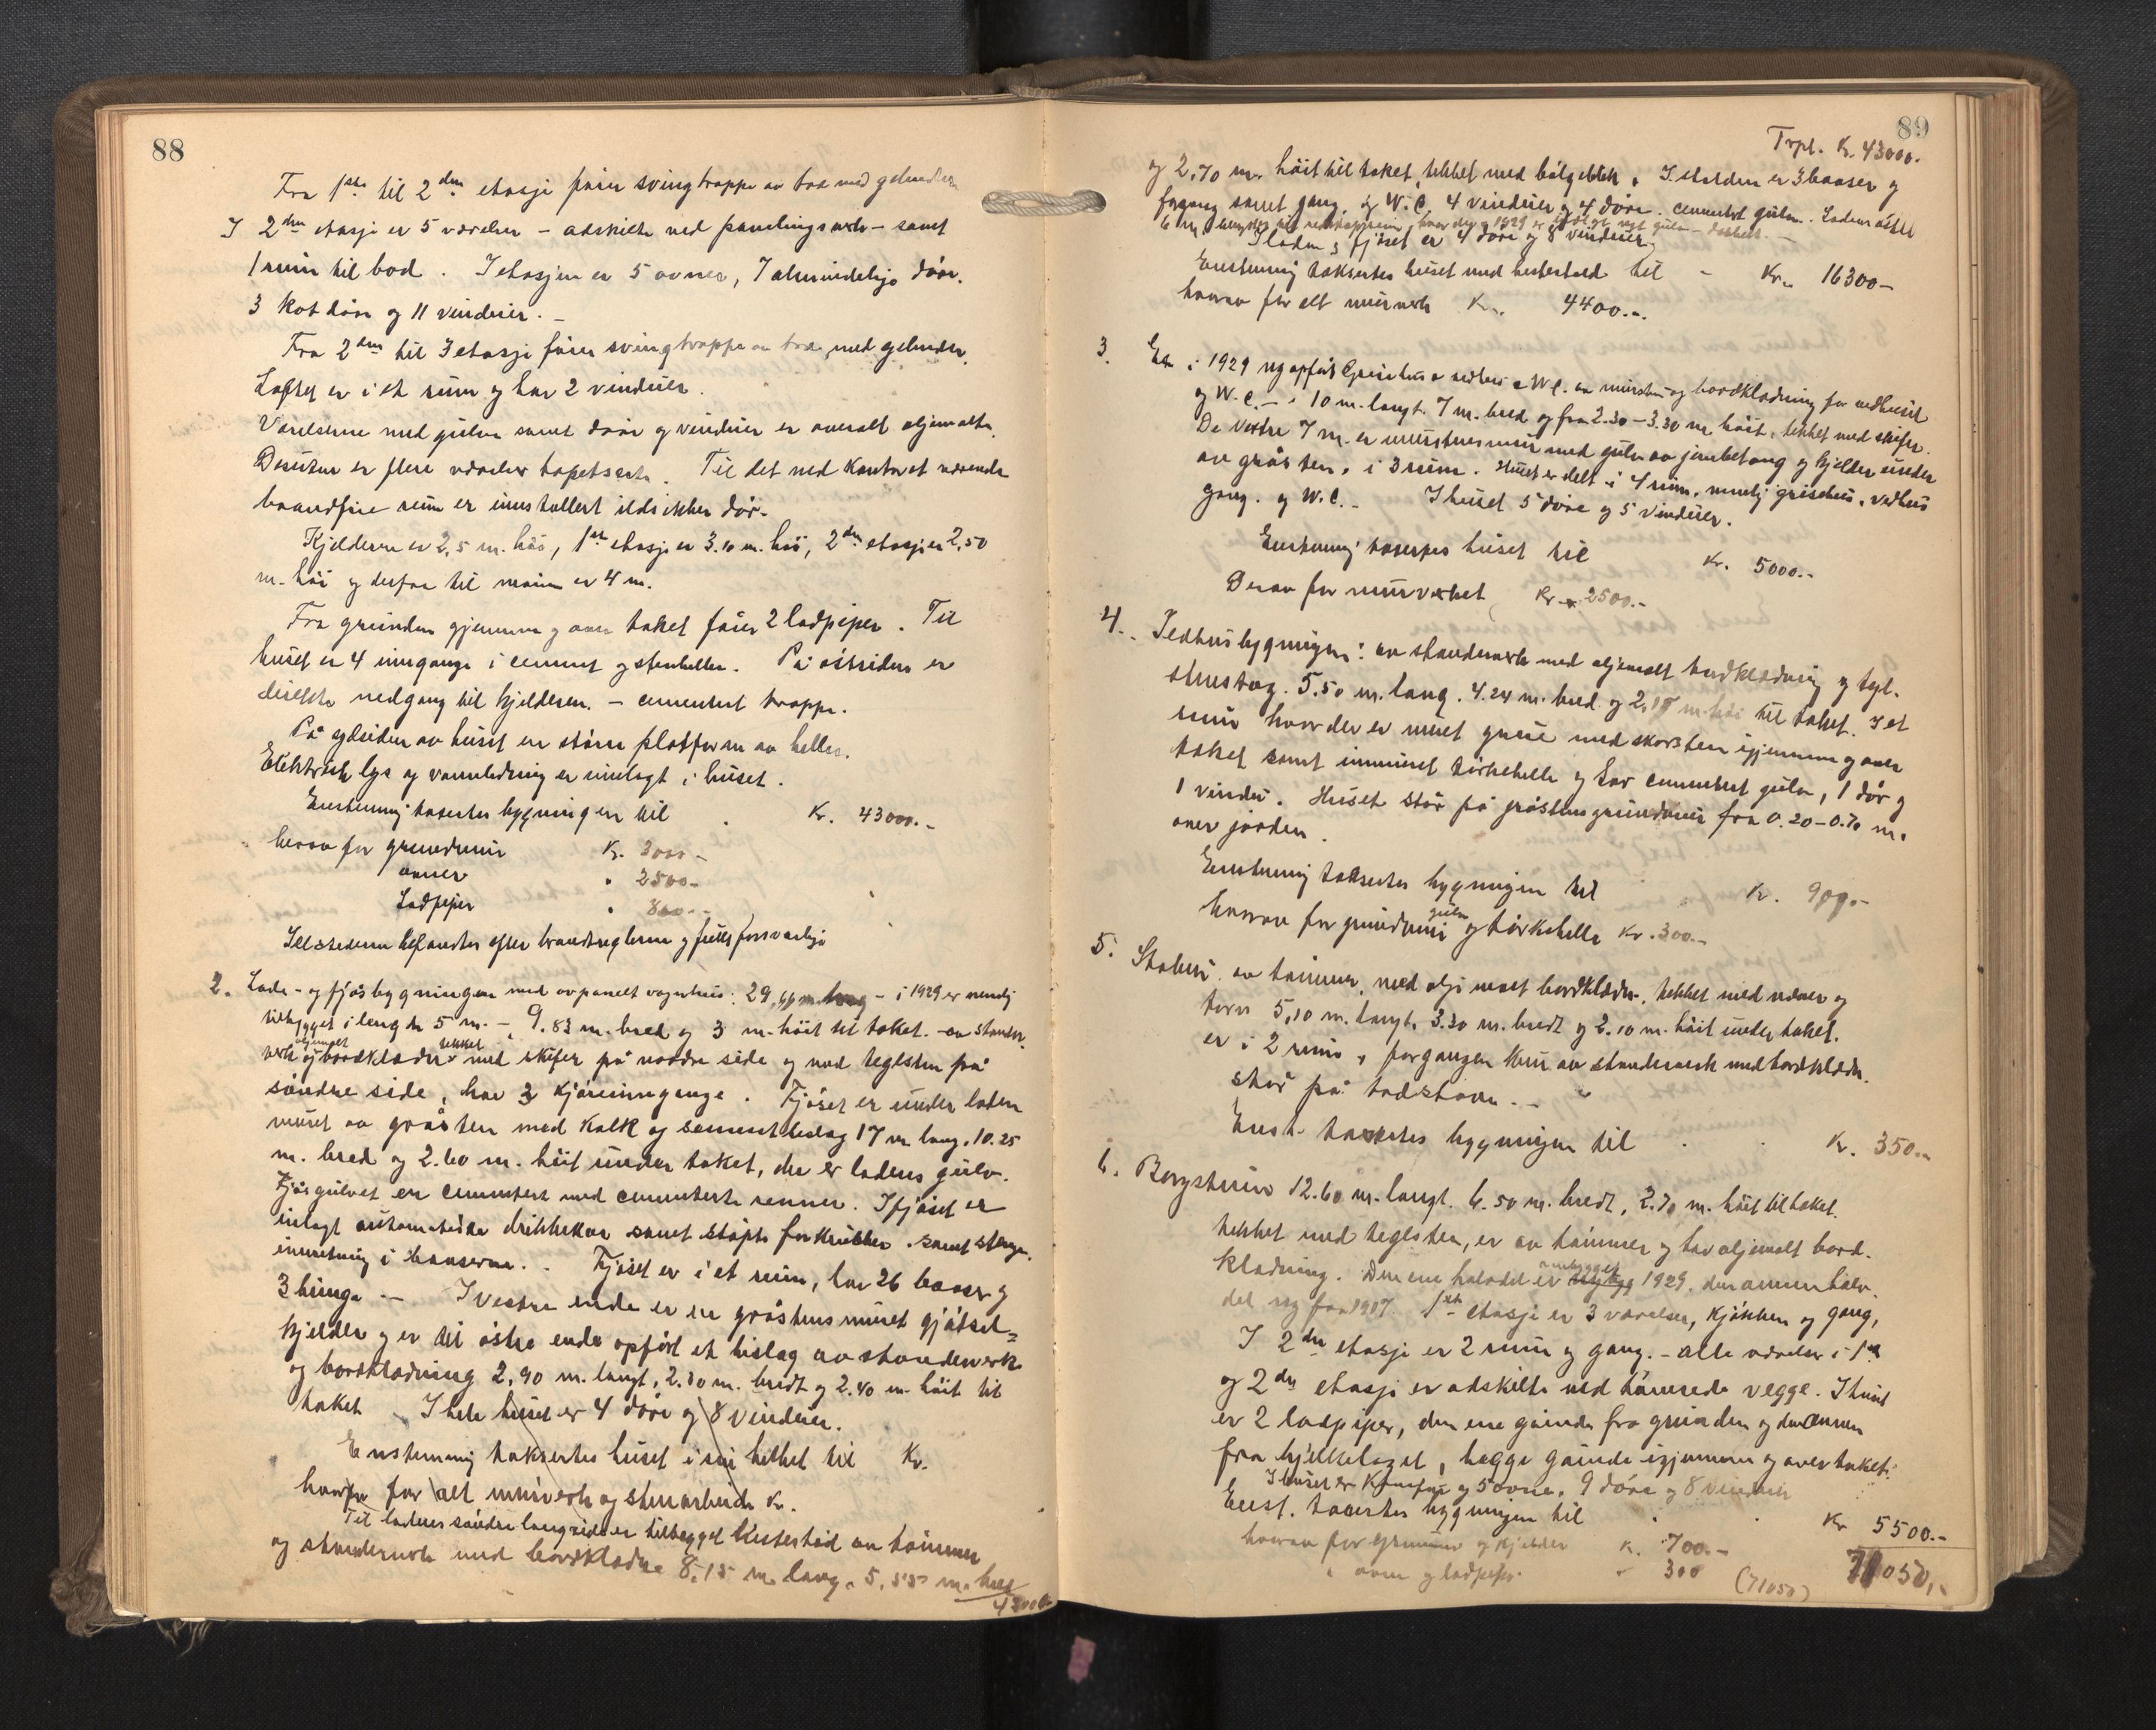 88
Fra 1ste til 2den etasje fører svingtrappe av træ med gelender.
I 2den etasje er 5 værelser – adskilte ved panelingsverk – samt
1 rum til bod. I etasjen er 5 ovner, 7 almindelige døre.
3 kot døre og 11 vinduer. –
Fra 2den til 3 etasje fører svingtrappe av træ med gelender.
Loftet er i et rum og har 2 vinduer.
Værelserne med gulve samt døre og vinduer er overalt oljemalte.
Desuten er flere værelser tapetserte. Til det ved kontoret værende
brandfrie rum er installert ildsikker dør.
Kjelderen er 2,5 m. høi, 1ste etasje er 3.10 m. høi, 2den etasje er 2,50
m. høi og derfra til mønen er 4 m.
Fra grunden gjennem og over taket fører 2 ladpiper. Til
huset er 4 innganger i cement og stenheller. På østsiden er
direkte nedgang til kjelderen. – cementert trappe.
På sydsiden av huset en større platform av heller.
Elektrisk lys og vannledning er innlagt i huset.
Enstemmig taxertes bygningen til Kr. 43000.–
herav for grundmur Kr. 3000–
ovner " 2500–
Ladpiper " 800.–
Ildstederne befandtes efter brandreglerne og fuldt forsvarlige
2. Lade- og fjøsbygningen med avpanelt vognhus: 29, m. lang – i 1929 er nemlig
tilbygget i lengde 5 m. – 9.83 m. bred og 3 m. høit til taket. – av stender-
verk og oljemalt bordklædd tekket med skifer på nordre side og med teglsten på
søndre side, har 3 kjøreinngange. Fjøset er under laden
muret av gråsten med kalk og sementbeslag 17 m lang, 10.25
m. bred og 2.60 m. høit under taket, der er ladens gulv.
Fjøsgulvet er cementert med cementerte renner. I fjøset er
inlagt automatiske drikkekar samt støpte forkrubber. samt stenge-
innretning i baaserne. . Fjøset er i et rum, har 26 baaser og
3 binge – I vestre ende er en gråstens muret gjødsel-
kjelder og er til østre ende opført et bislag av stenderverk
og bordklædning 2,90 m. langt, 2.80 m. bredt og 2.40 m. høit til
taket I hele huset er 4 døre og 8 vinduer.
Enstemmig taksertes huset i sin helhet til Kr.
hvorav for alt murverk og stenarbeide Kr.
Til ladens søndre langside er tilbygget hestestald av tømmer
og stenderverk med bordklædn. 8,15 m. lang. 5,55 m. bred
43000
89
Trpt. Kr. 43000.
og 2,70 m. høit til taket, tekket med bølgeblik. I stalden er 3 baaser og
forgang samt gang, og W.C. 4 vinduer og 4 døre. cementert gulv. Ladens østre
6 m. benyttes til redskapsrum, hvor der i 1929 er innlagt nyt gulv –
I laden og fjøset er 4 døre og 8 vinduer.
Enstemmig taksertes huset med hestestald til – Kr. 16300–
hvorav for alt murverk Kr. 4400.–.
3. Et i 1929 nyopført Grisehus vedhus & W.C. av mursten og bordklædning for vedhuset
og W.C. – 10 m. langt. 7 m. bred og fra 2.30 – 3.30 m. høit, tekket med skifer.
De vestre 7 m. er murstensmur med gulv av jernbetong og kjelder under
av gråsten, i 3 rum. Huset er delt i 4 rum, nemlig grisehus, vedhus
gang. og W.C. – I huset 5 døre og 5 vinduer.
Enstemmig taxertes huset til Kr. 5000.–
Derav for murverket Kr. 2500.–
4. Ildhusbygningen: av stenderverk med oljemalt bordklædning og tegl-
stenstag. 5.50 m. lang. 4.24 m. bred og 2,15 m. høi til taket. I et
rum hvor der er muret grue med skorsten igjennem og over
taket samt innmuret tørkehelle og har cementert gulv, 1 dør og
1 vindu. Huset står på gråstens grundmur fra 0.20 – 0.70 m.
over jorden.
Enstemmig taksertes bygningen til Kr. 900.–
hvorav for grundmur gulv og tørkehelle Kr. 300.–
5. Stabur av tømmer, med olje malt bordklædn., tekket med næver og
torv 5,10 m. langt, 3.30 m. bredt og 2.10 m. høit under taket.
er i 2 rum, forgangen kun av stenderverk med bordklædn.
står på
Enst. taxertes bygningen til . . Kr. 350.–
6. Borgstuen 12.60 m. langt. 6.50 m. bredt, 2.70 m. høit til taket.
tekket med teglsten, er av tømmer og har oljemalt bord-
klædning. Den ene halvdel er ombygget 1929, den annen halv-
del ny fra 1917. 1ste etasje er 3 værelser, kjøkken og gang,
I 2den etasje er 2 rum og gang. – alle værelser i 1ste
og 2den etasje er adskilte ved tømrede vegge. I huset
er 2 ladpiper, den ene gående fra grunden og den annen
fra bjelkelaget, begge gående igjennem og over taket.
I huset er Komfur og 5 ovne, 9 døre og 8 vinduer
Enst. taxertes bygningen til Kr 5500.–
hvorav for grunmur og kjelder Kr. 700.–
" ovne og ladpiper " 300 (71050) 71050,–